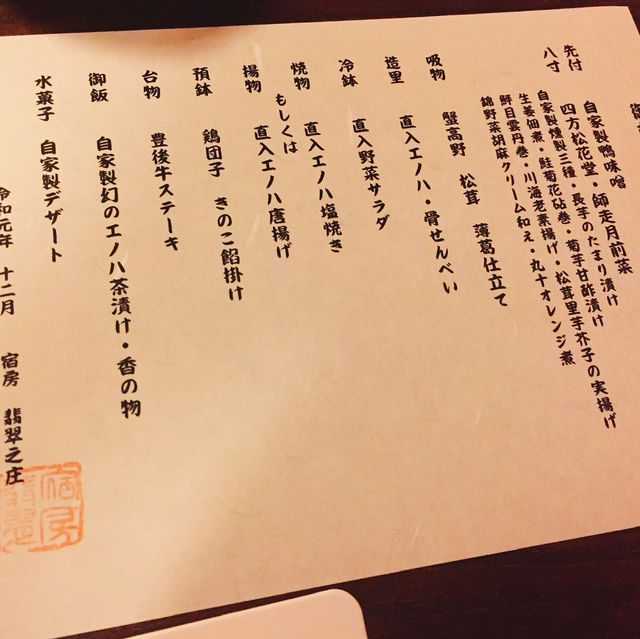 御
先付 自家製鴨味噌
八寸 四方松花堂・師走月前菜
自家製燻製三種・長芋のたまり漬け
生姜佃煮・鮭菊花砧巻・菊芋甘酢漬け
鮮目雲丹巻・川海老素揚げ・松茸里芋芥子の実揚げ
錦野菜胡麻クリーム和え・丸十オレンジ煮
吸物 蟹高野 松茸 薄葛仕立て
造里 直入エノハ・骨せんべい
冷鉢 直入野菜サラダ
焼物 直入エノハ塩焼き
もしくは
揚物 直入エノハ唐揚げ
預鉢 鶏団子 きのこ餡掛け
台物 豊後牛ステーキ
御飯 自家製幻のエノハ茶漬け・香の物
水菓子 自家製デザート
令和元年 十二月 宿房 翡翠之庄